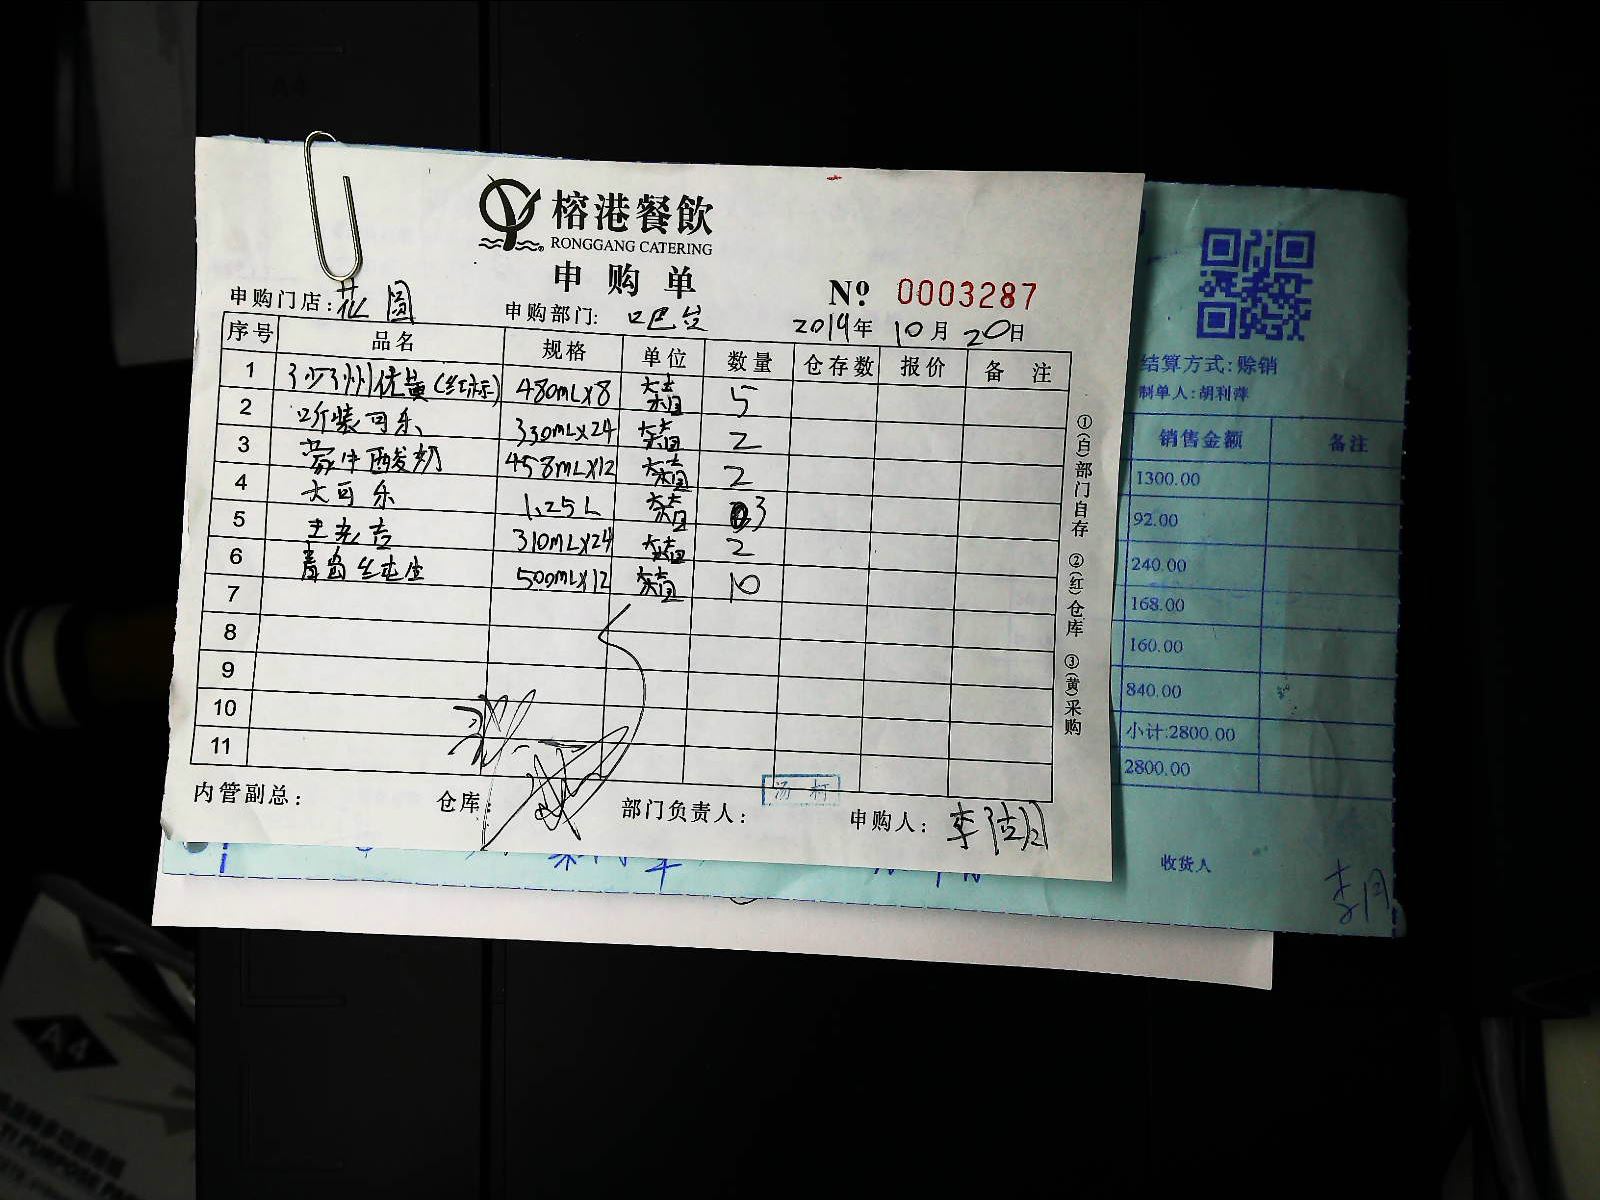 榕港餐飲
RONGGANG CATERING
申购单
№ 0003287
申购门店: 花园 申购部门: 吧台 2019年 10月 20日
序号 品名 规格 单位 数量 仓存数 报价 备注
1 沙洲优黄(红标) 480mL×8 箱 5
2 听装可乐 330mL×24 箱 2
3 蒙牛酸奶 458mL×12 箱 2
4 大可乐 1.25L 箱 3
5 王老吉 310mL×24 箱 2
6 青岛纯生 500mL×12 箱 10
7
8
9
10
11
内管副总: 仓库: 部门负责人: 汤柯 申购人:
①(白)部门自存 ②(红)仓库 ③(黄)采购
结算方式:赊销
制单人:胡利萍
销售金额 备注
1300.00
92.00
240.00
168.00
160.00
840.00
小计:2800.00
2800.00
收货人
A4